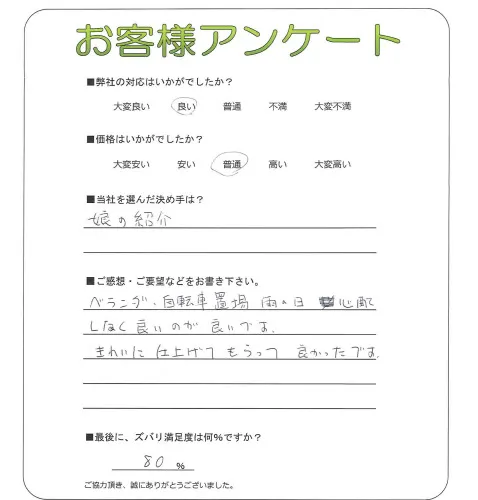 お客様アンケート
■弊社の対応はいかがでしたか？
大変良い 良い 普通 不満 大変不満
■価格はいかがでしたか？
大変安い 安い 普通 高い 大変高い
■当社を選んだ決め手は？
娘の紹介
■ご感想・ご要望などをお書き下さい。
ベランダ、自転車置場 雨の日 心配
しなく良いのが良いです.
きれいに仕上げてもらって 良かったです.
■最後に、ズバリ満足度は何%ですか？
80 %
ご協力頂き、誠にありがとうございました。